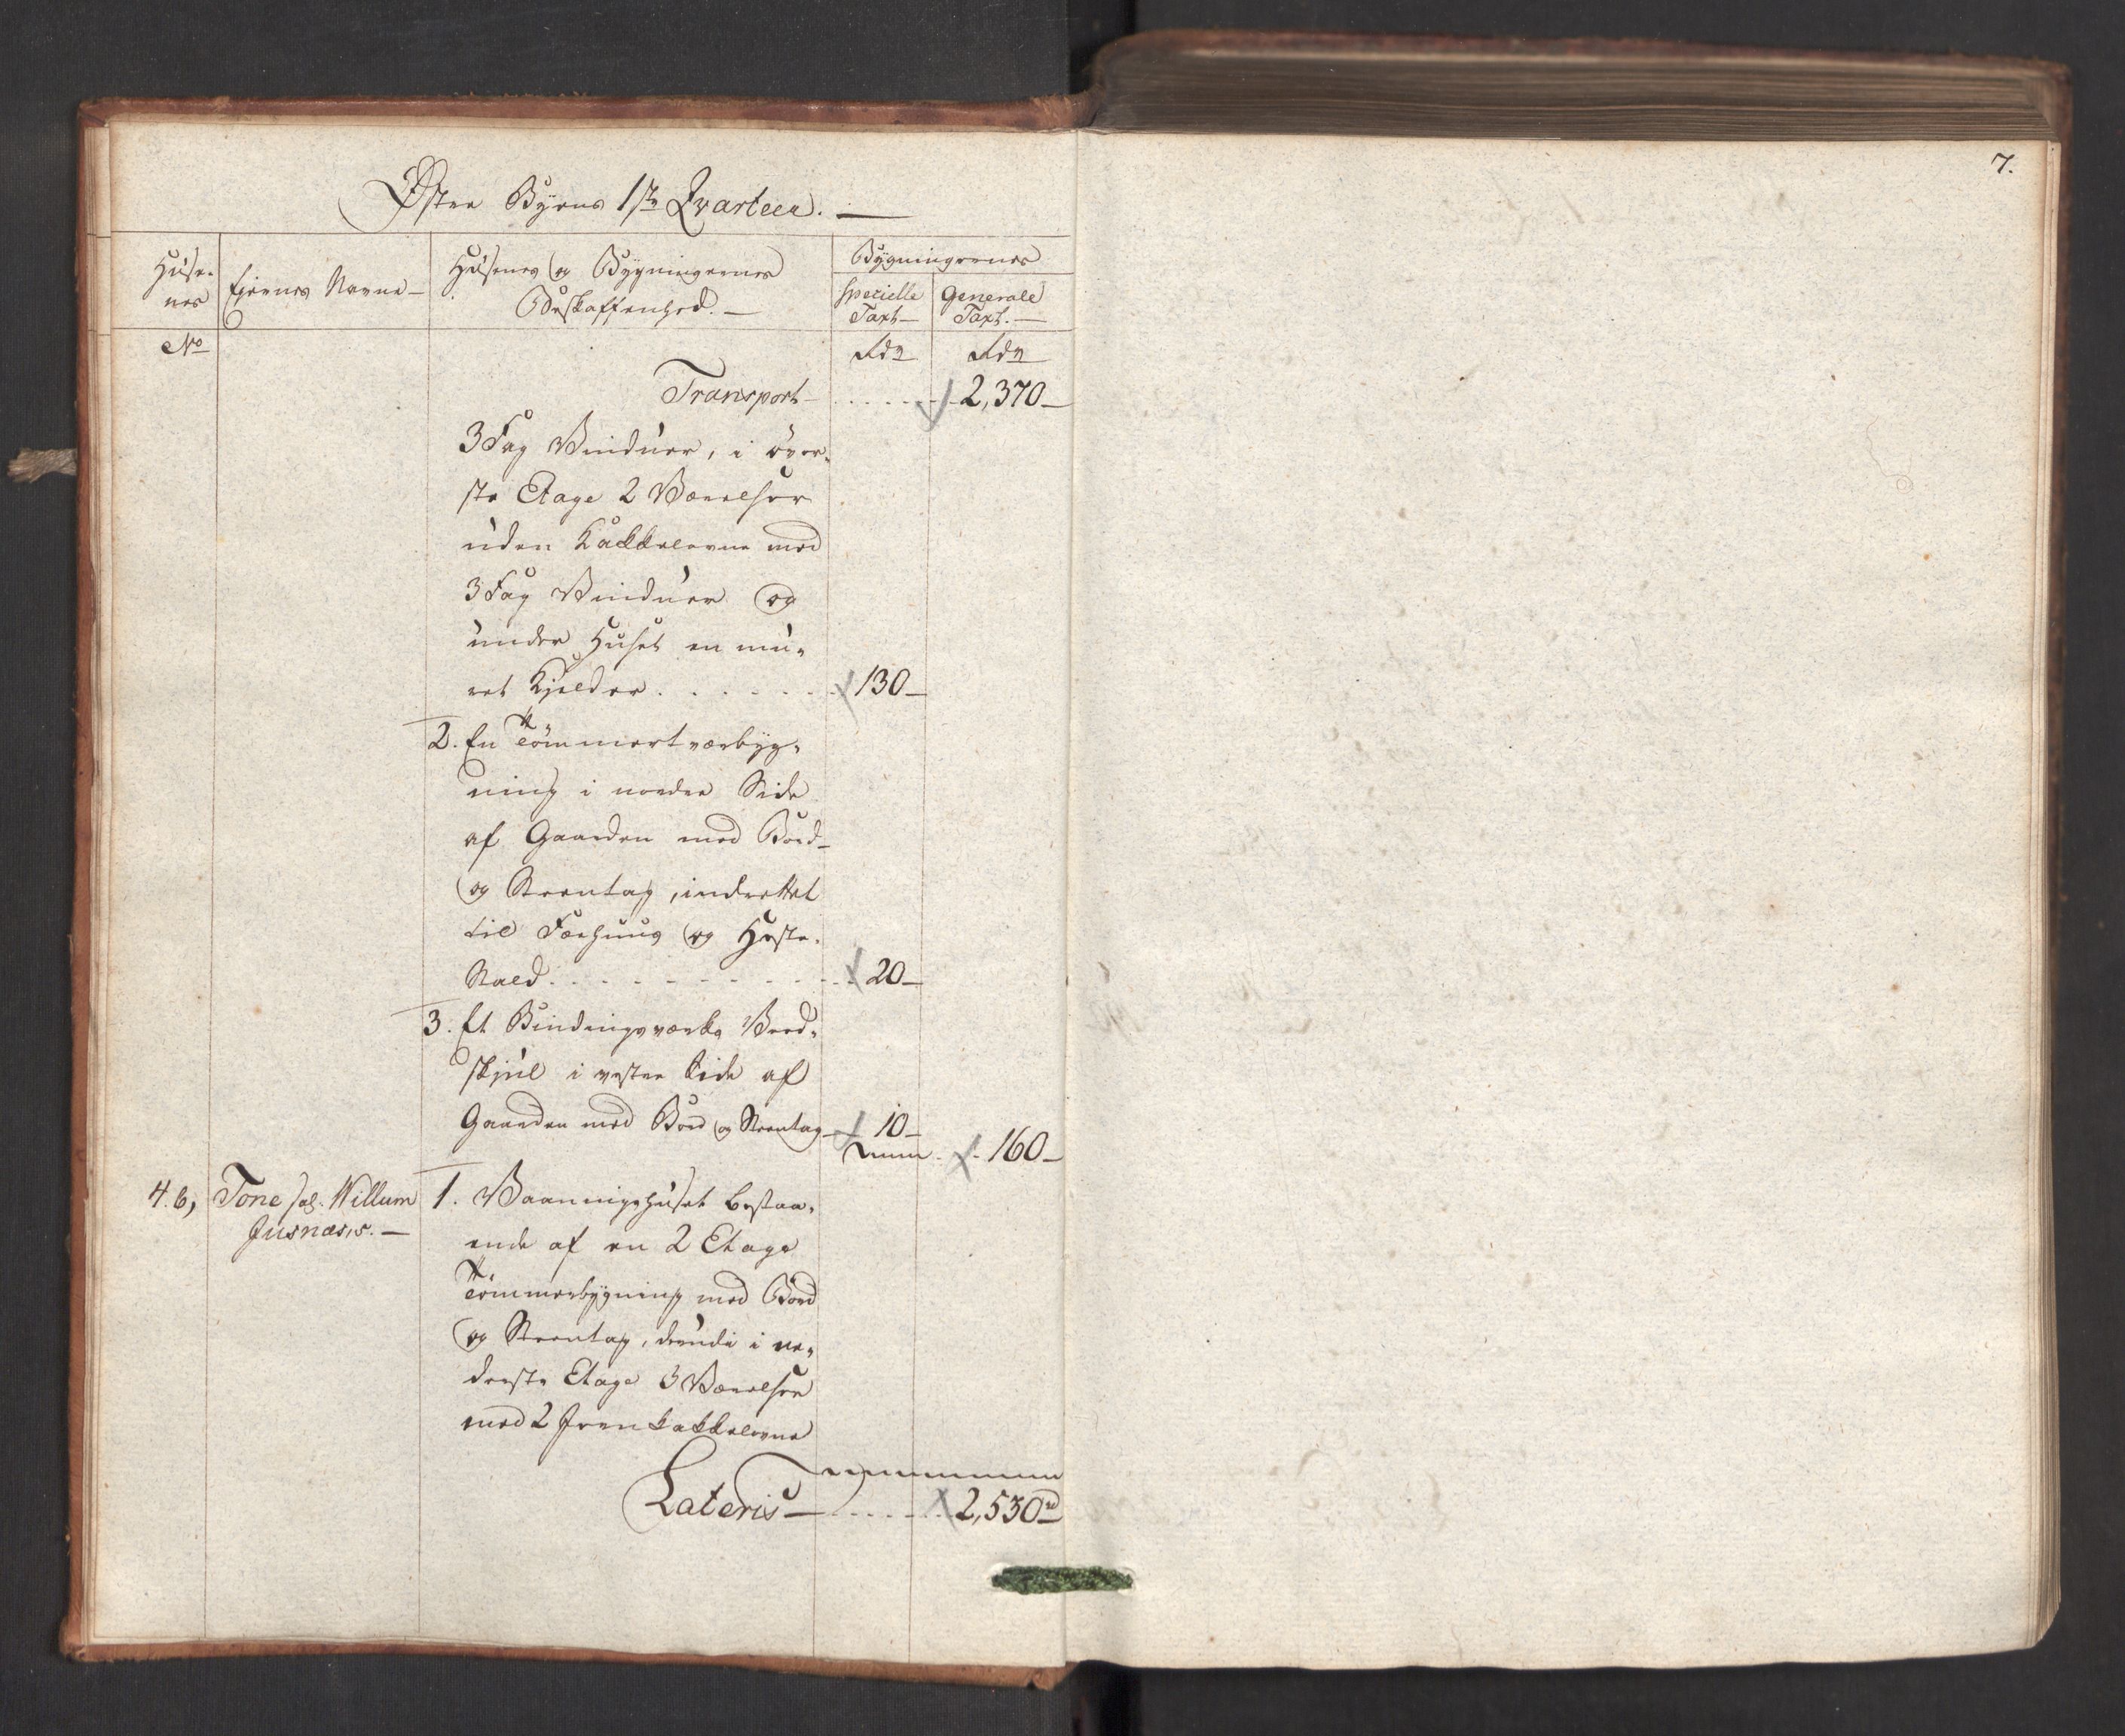 7.
Øster Byens 1ste Qvarteer. —
Huse-
nes
Ejernes Navne —
Husenes og Bygningernes
Beskaffenhed. —
Bygningernes
specielle
Taxt —
Generale
Taxt. —
No
Rdr
Rdr
Transport — . . . . . . 2,370 —
3 Fag Vinduer, i øver-
ste Etage 2 Værelser
uden Kakkelovne med
3 Fag Vinduer og
under Huset en mu-
ret Kjelder . . . . . . . 130 —
2. En Tømmertværbyg-
ning i norder Side
af Gaarden med Bord-
og Steentag, indrettet
til Fæehuus og Heste-
Stald . . . . . . . . . . . 20 —
3. Et Bindingsværks Veed-
skjul i vester Side af
Gaarden med Bord og Steentag — 10 —
160 —
4. b, Tone sal. Willum
Jusnæs,s. —
1. Vaaningshuset bestaa-
ende af en 2 Etage
Tømmerbygning med Bord
og Steentag, derudi i ne-
derste Etage 3 Værelser
med 2 Jern kakkelovne
Lateris — . . . . . . 2,530 rd